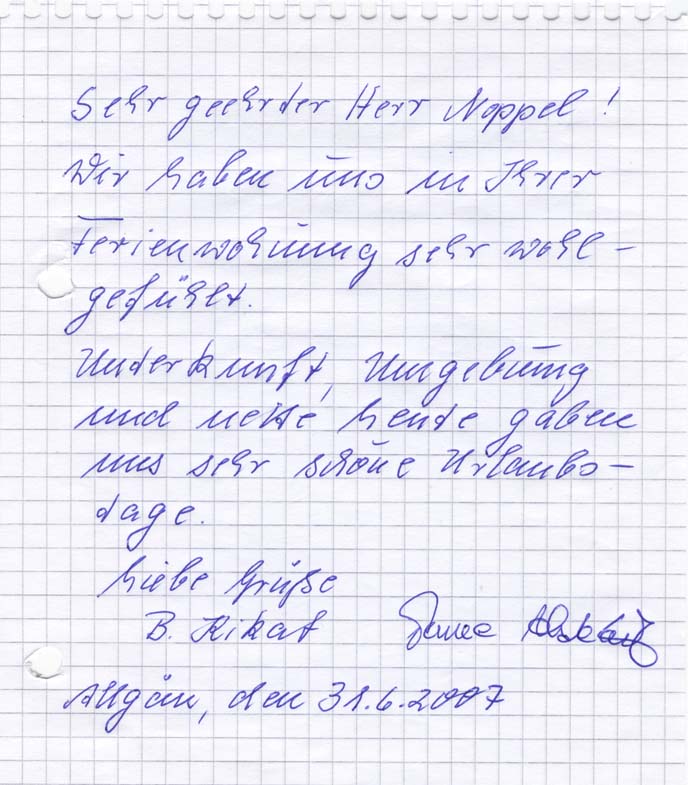 Sehr geehrter Herr Noppel!
Wir haben uns in Ihrer
Ferienwohnung sehr wohl-
gefühlt.
Unterkunft, Umgebung
und nette Leute gaben
uns sehr schöne Urlaubs-
tage.
Liebe Grüße
B. Kikat
Allgäu, den 31.6.2007